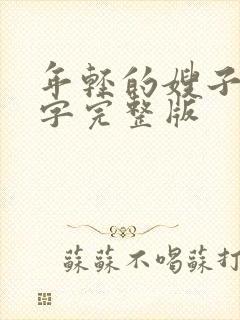 年轻的嫂子
字完整版
蘇蘇不喝蘇打